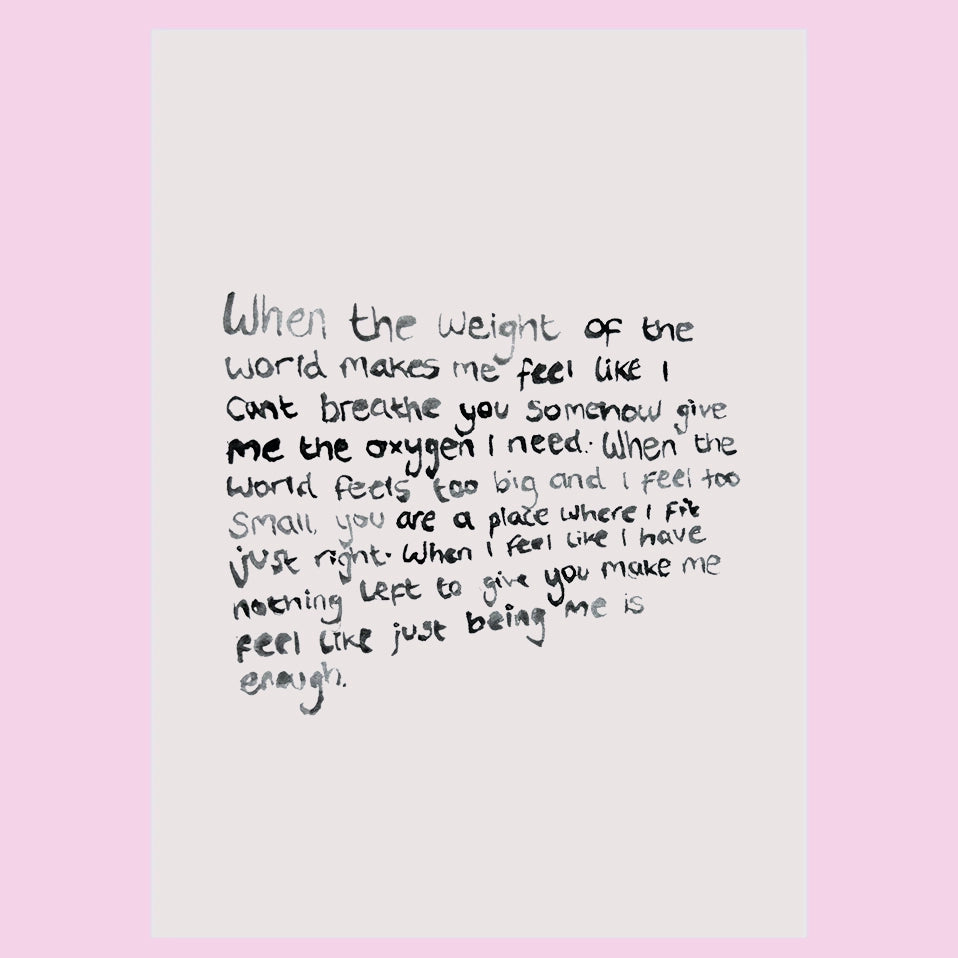 When the weight of the
world makes me feel like I
cant breathe you somehow give
me the oxygen I need. When the
world feels too big and I feel too
small, you are a place where I fit
just right. When I feel like I have
nothing left to give you make me
feel like just being me is
enough.